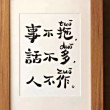 tuō
事不拖，
duō
話不多，
zuō
人不作。